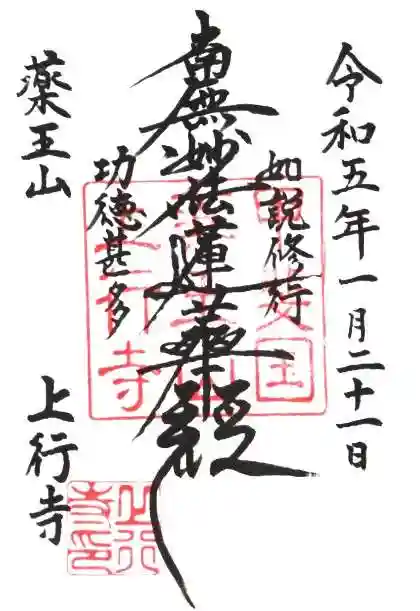 令和五年一月二十一日
如説修行
南無妙法蓮華経
功徳甚多
薬王山
上行寺